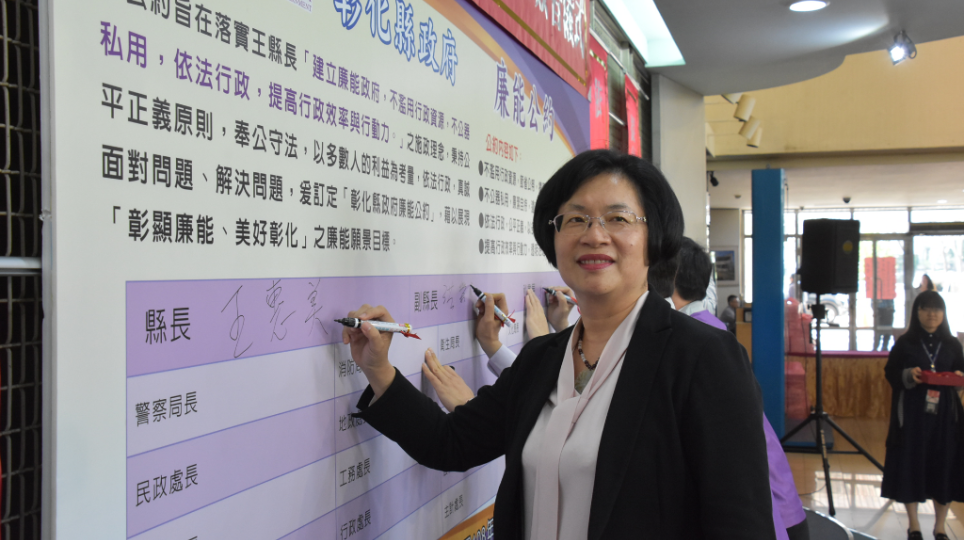 彰化縣政府
廉能公約
公約旨在落實王縣長「建立廉能政府，不濫用行政資源，不公器
私用，依法行政，提高行政效率與行動力。」之施政理念，秉持公
平正義原則，奉公守法，以多數人的利益為考量，依法行政，真誠
面對問題、解決問題，爰訂定「彰化縣政府廉能公約」，藉以展現
「彰顯廉能、美好彰化」之廉能願景目標。
公約內容如下：
●不濫用行政資源，
●不公器私用，
●依法行政，公平正義，
●提高行政效率與行動力，
縣長
王惠美
副縣長
警察局長
消防
衛生局長
民政處長
地政處
工務處長
行政處長
主計處長